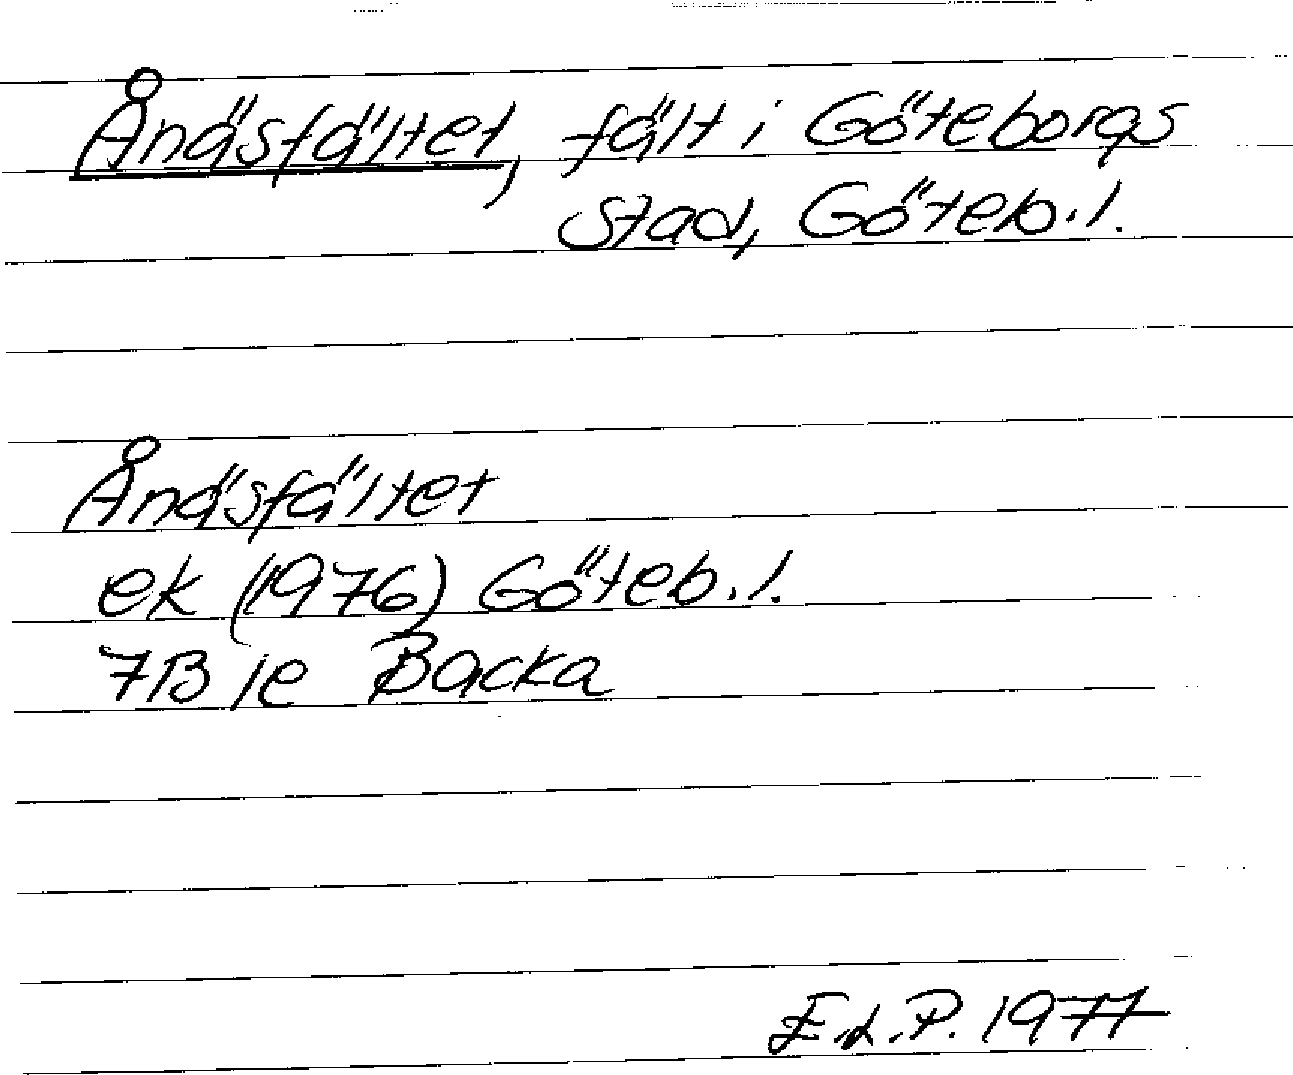 Ånäsfältet, fält i Göteborgs
stad, Göteb. l.
Ånäsfältet
ek (1976) Göteb. l.
7B 1e Backa
E.L.P. 1977